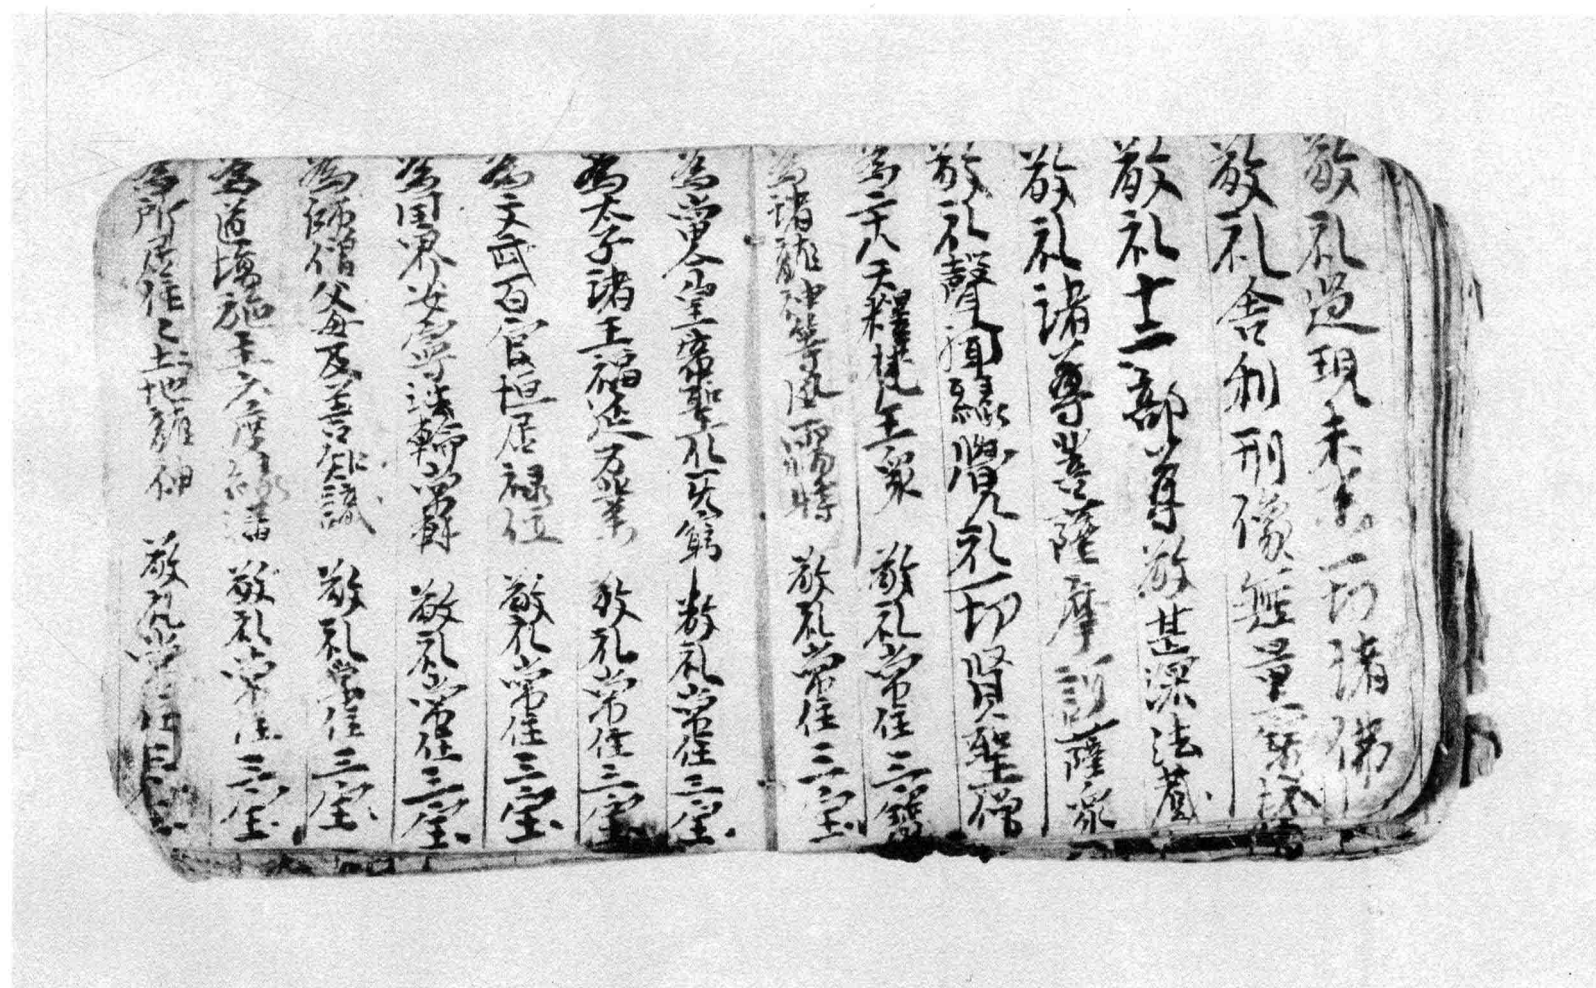 敬礼過現未來一切諸佛
敬礼舍利刑像無量寶塔
敬礼十二部尊敬甚深法藏
敬礼諸尊菩薩摩訶薩衆
敬礼聲聞緣覺礼一切賢聖僧
為二十八天釋梵王衆 敬礼常住三寶
為諸龍神等風雨順時 敬礼常住三宝
為當今皇帝聖化無窮 敬礼常住三宝
為太子諸王福延万葉 敬礼常住三宝
為文武百官恒居禄位 敬礼常住三宝
為国界安寧法輪常轉 敬礼常住三宝
為師僧父母及善知識 敬礼常住三宝
為道場施主六度緣滿 敬礼常住三宝
為所居住之土地龍神 敬礼常住三宝